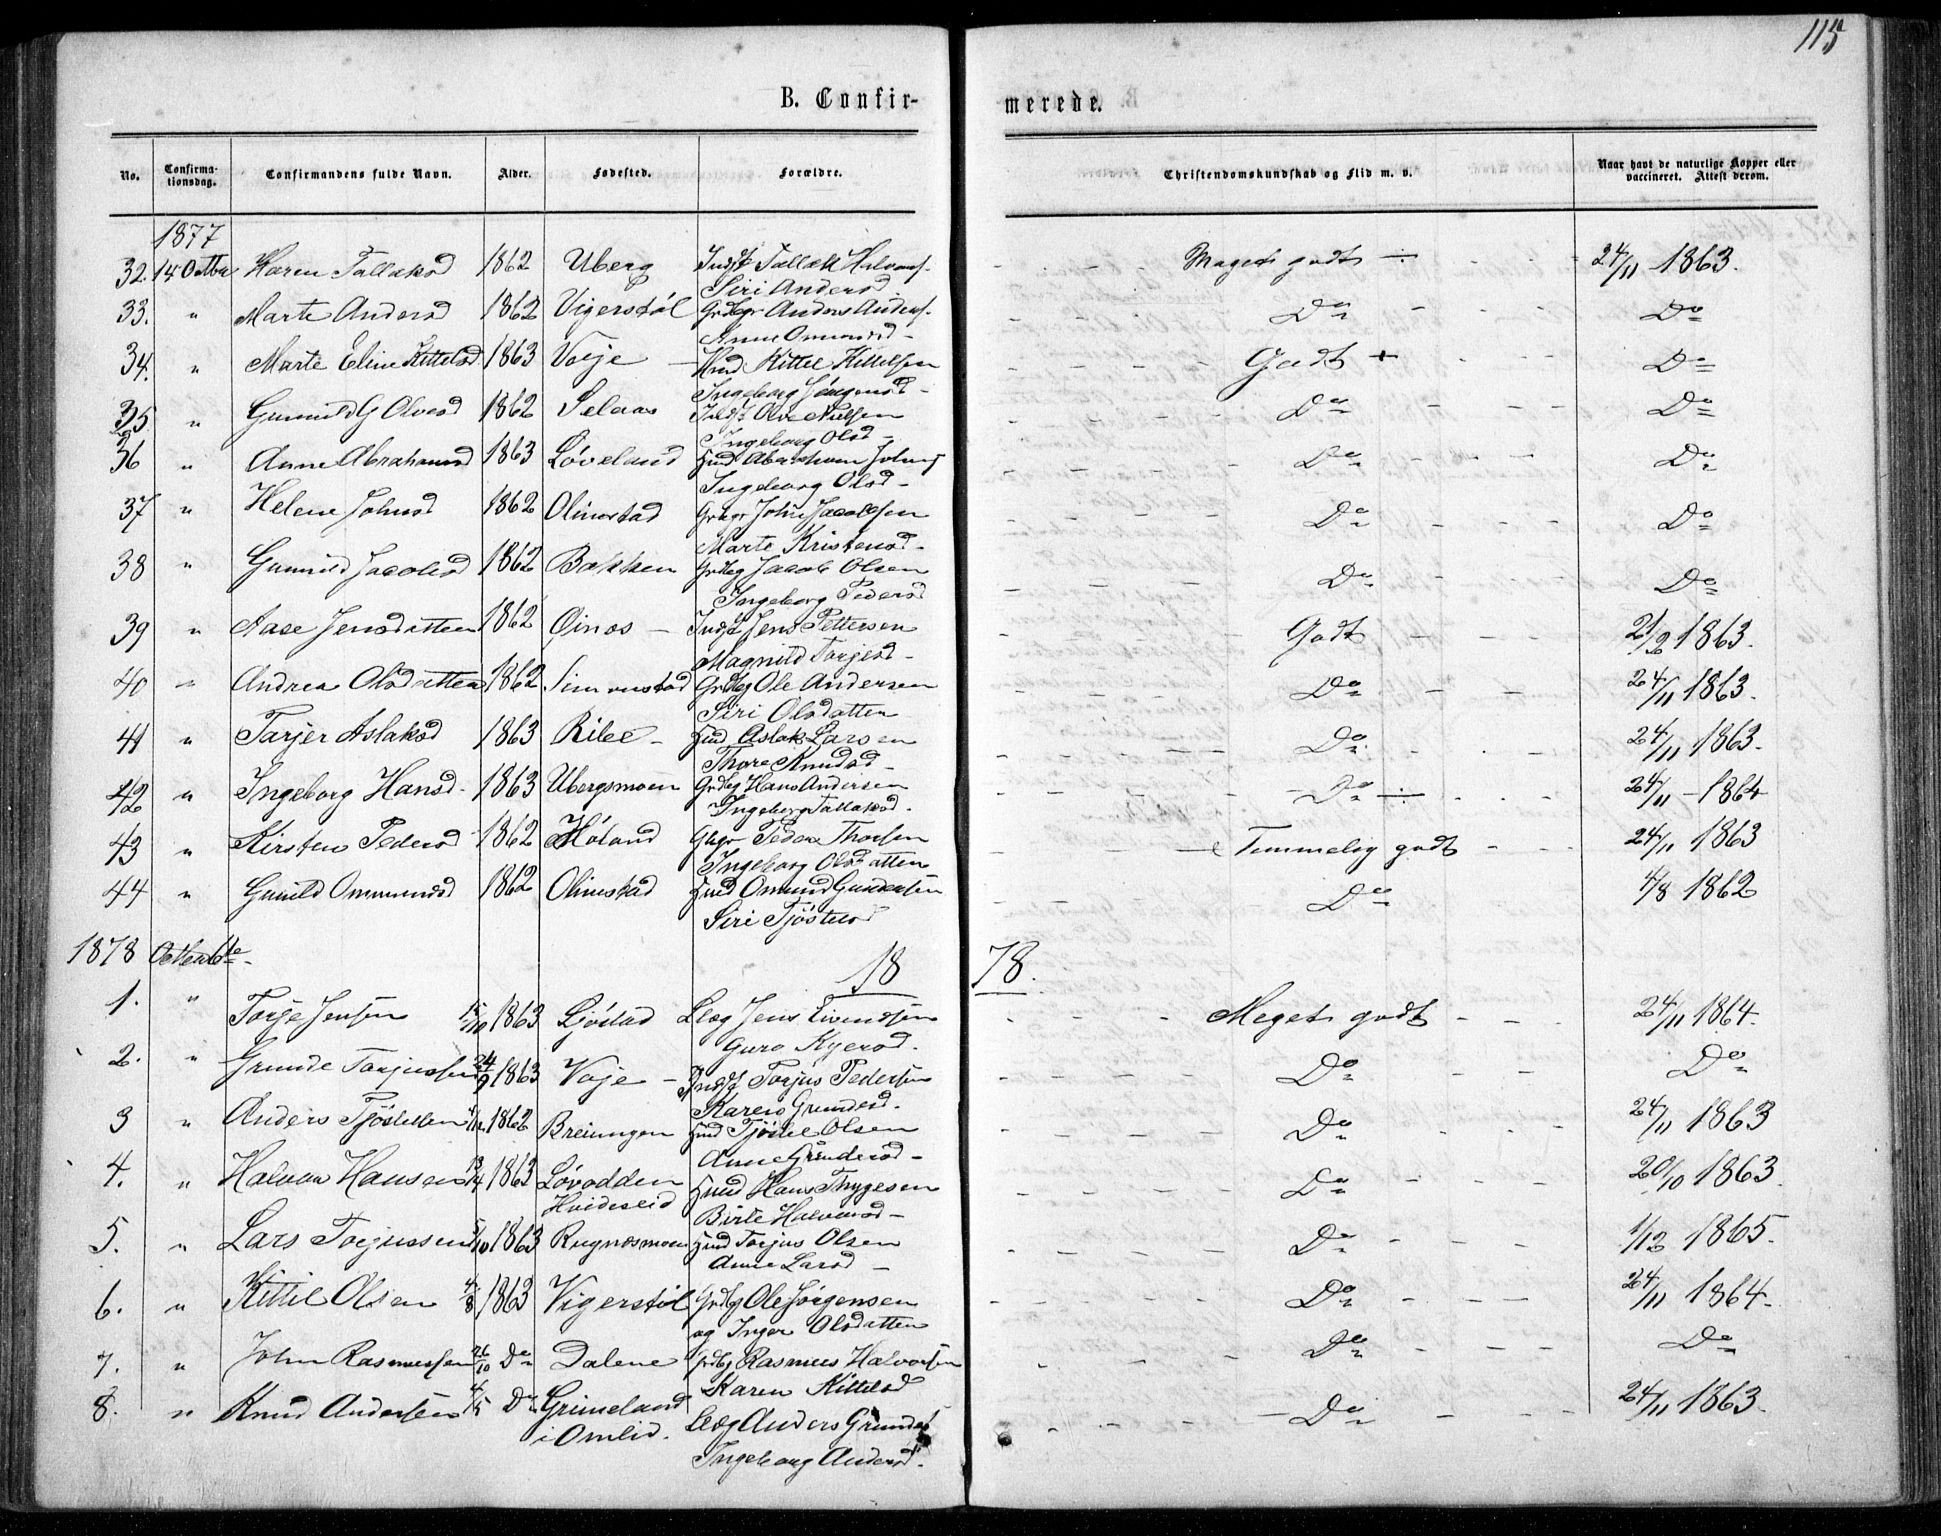 115
B. Confir-
merede.
No. Confirma-tionsdag. Confirmandens fulde Navn. Alder. Fødested. Forældre. Christendomskundskab og Flid m. v. Naar havt de naturlige Kopper eller vaccineret. Attest derom.
1877
32. 14 Octbr Karen Tallaksd 1862 Uberg Indst Tallak Halvors. Meget godt ÷ 24/11 1863.
Siri Andersd
33. " Marte Andersd 1862 Vigerstøl Grdbgr Anders Anders. Do Do
Anne Omundsd -
34. " Marte Eline Kittelsd 1863 Voje - Hmd Kittel Kittelsen Godt + Do
Ingeborg Jørgensd -
35 " Gunnild G Olvesd 1862 Selaas Indst Olve Nielsen Do Do
Ingeborg Olsd -
36 " Anne Abrahamsd 1863 Løveland Hmd Abraham Johns Do Do
Ingeborg Olsd -
37 " Helene Johnsd 1862 Olimstad Grbgr John Jacobsen Do Do
Marte Kristensd -
38 " Gunnild Jacobsd 1862 Bakken Grdbg Jacob Olsen Do Do
Ingeborg Pedersd
39 " Aase Jensdatten 1862 Øinas - Indst Jens Pettersen Godt 21/2 1863.
Magnild Torjesd -
40 " Andrea Olsdatten 1862 Simonstad Grdbg Ole Andersen Do 24/11 1863.
Siri Olsdatten
41 " Tarjer Aslaksd 1863 Rilee - Hmd Aslak Larsen Do 24/11 1863.
Thore Knudsd -
42 " Ingeborg Hansd - 1863 Ubergsmoen Grdbg Hans Andersen Do ÷ 24/11 - 1864
Ingeborg Tallaksd.
43 " Kirsten Pedersd 1862 Høland Gbgr Peder Thorsen Temmelig godt 24/11 1863
Ingeborg Olsdatten
44 " Gunild Ommundsd 1862 Olimstad Hmd Omund Gundersen Do 4/8 1862
Siri Tjøstelsd
1878 Octbr 6te
18 78.
1. " Torje Jensen 15/10 1863 Ljøstad Leg Jens Eivendsen Meget godt 24/11 1864.
Guro Kjersd.
2. " Grunde Torjussen 24/9 1863 Voje - Indst Torjus Pedersen Do Do
Karen Grundesd.
3 " Anders Tjøstelsen 4/12 1862 Breiungen Hmd Tjøstel Olsen Do 24/11 1863
Anne Grundesd -
4. " Halvor Hansen 13/4 1863 Løvodden Hmd Hans Thygesen Do 20/10 1863.
Hvideseid Birte Halvorsd -
5. " Lars Torjussen 5/10 1863 Rugnesmoen Hmd Torjus Olsen Do 1/12 1865.
Anne Larsd -
6. " Kittil Olsen 4/8 1863 Vigerstøl Grdbg Ole Jørgensen Do 24/11 1864.
og Inger Olsdatten
7. " John Rasmussen 26/10 Do Dalene Grdbg Rasmus Halvorsen Do Do
Karen Kittelsd
8. " Knud Andersen 4/5 Do Grimeland Leg Anders Grundes Do 24/11 1863.
i Omlid. Ingeborg Andersd.